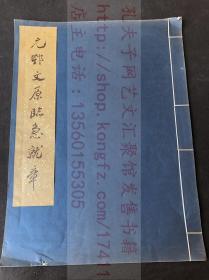 元鄧文原臨急就章
孔夫子网艺文汇聚馆发售书籍
http://shop.kongfz.com/17411
店主电话：13560155305